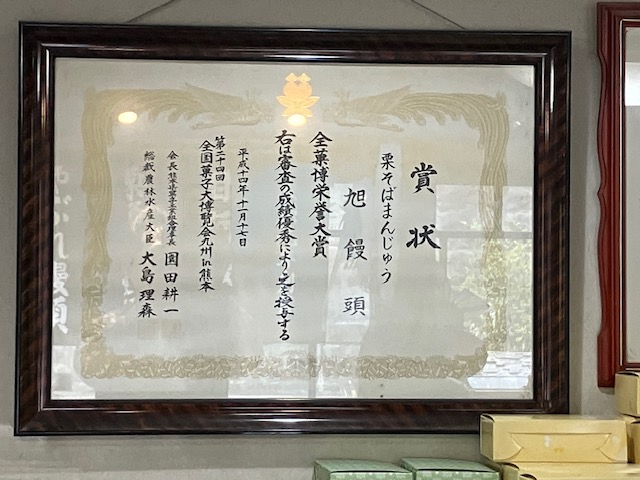 賞状
栗そばまんじゅう
旭饅頭
全菓博栄誉大賞
右は審査の成績優秀により之を授与する
平成十四年十一月十七日
第二十四回
全国菓子大博覧会九州in熊本
会長熊本県菓子工業組合理事長 園田耕一
総裁農林水産大臣 大島理森